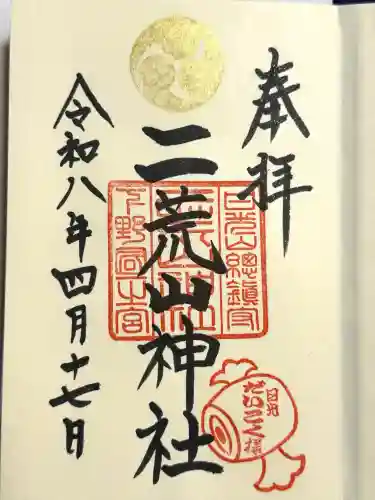 奉拝
二荒山神社
令和八年四月十七日
日光山總鎮守
下野國一之宮
日光
だいこく様